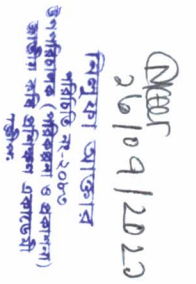 26/09/2023
নিলুফা আক্তার
পরিচিতি নং-২০৮৩
উপপরিচালক (পরিকল্পনা ও প্রকাশনা)
জাতীয় কৃষি প্রশিক্ষণ একাডেমী
গাজীপুর